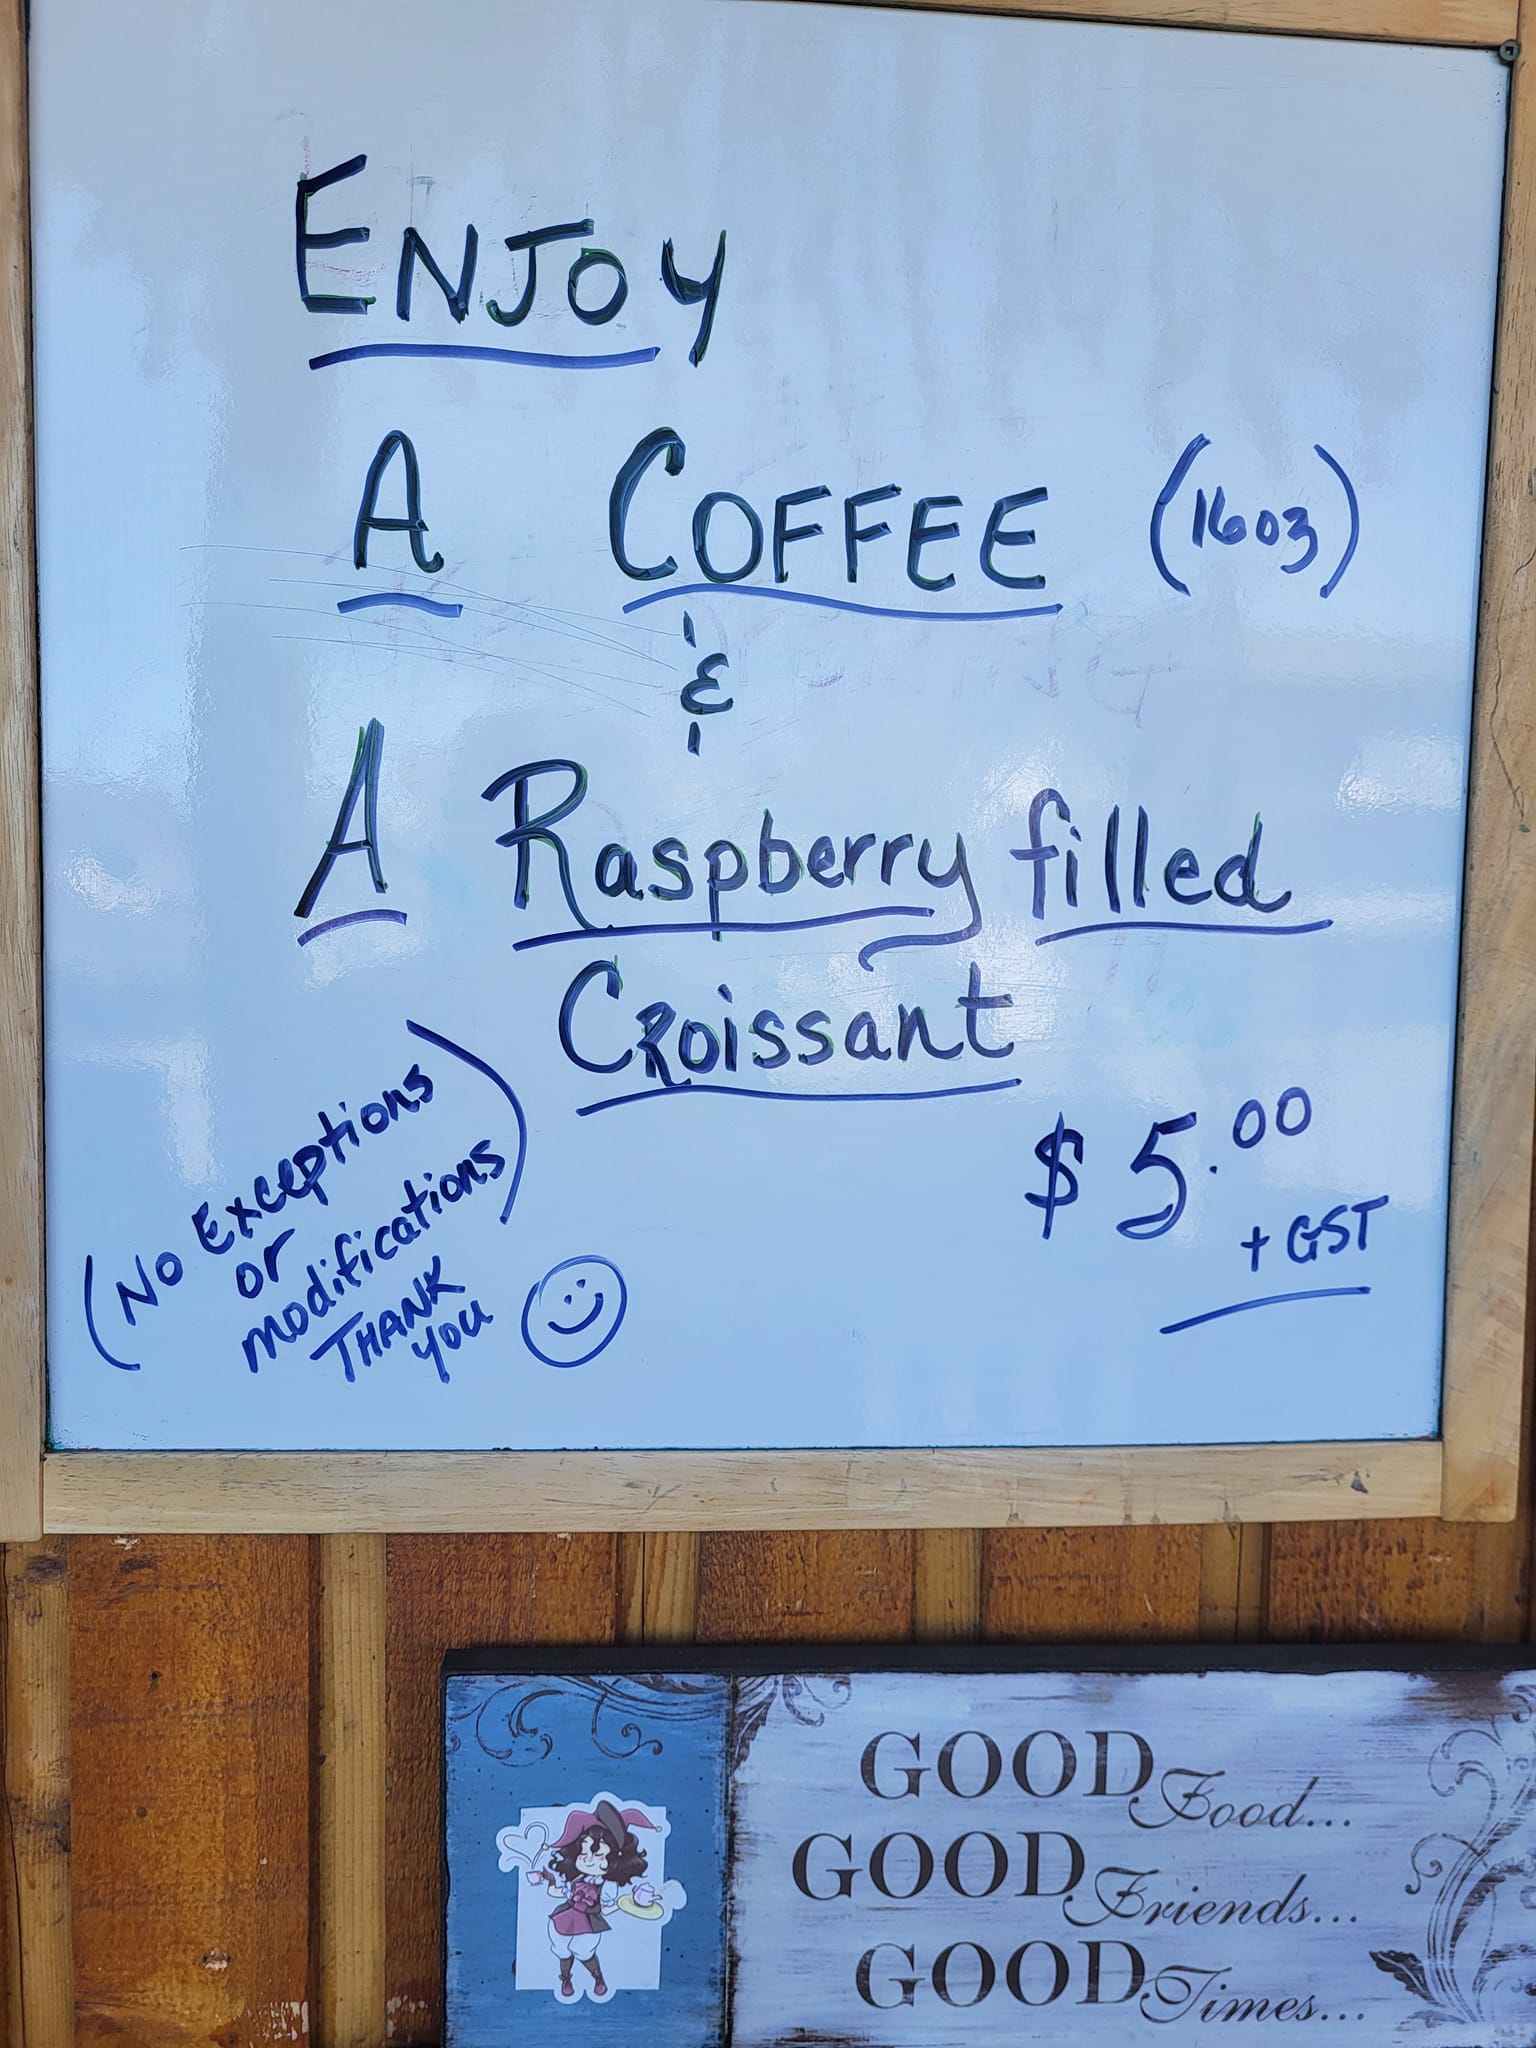 ENJOY
A COFFEE (16oz)
&
A Raspberry filled
Croissant
$5.00
+ GST
(No Exceptions
or
modifications)
THANK
you
GOOD Food...
GOOD Friends...
GOOD Times...